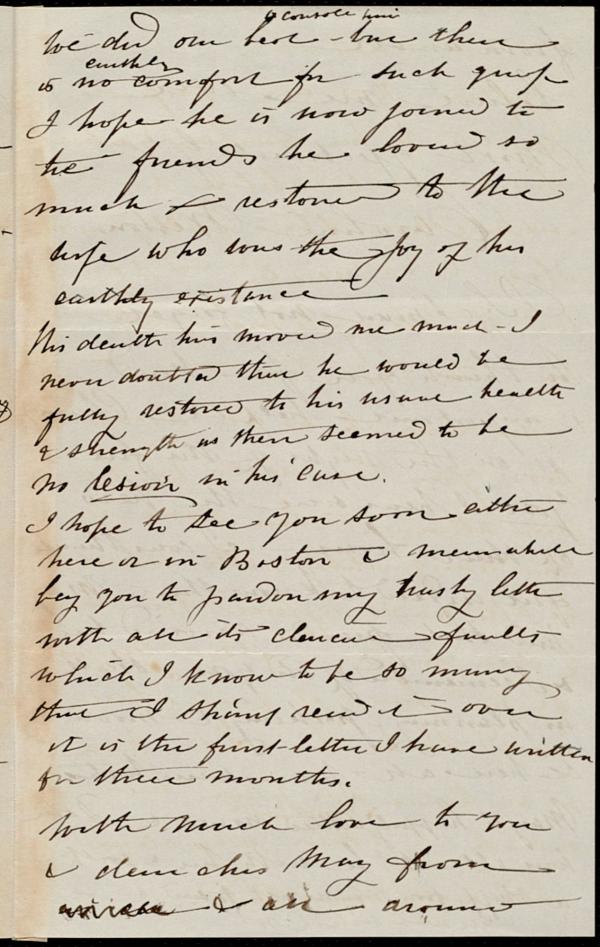 to console him
We did our best - but there
earthly
is no comfort for such grief
I hope he is now joined to
the friends he loved so
much & restored to the
wife who was the joy of his
earthly existance
His death has moved me much - I
never doubted that he would be
fully restored to his usual health
& strength as there seemed to be
no lesion in his case.
I hope to see you soon either
here or in Boston & meanwhile
beg you to pardon my hasty letter
with all its clerical faults
which I know to be so many
that I shant read it over
it is the first letter I have written
for three months.
With much love to you
& dear Miss May from
& all around